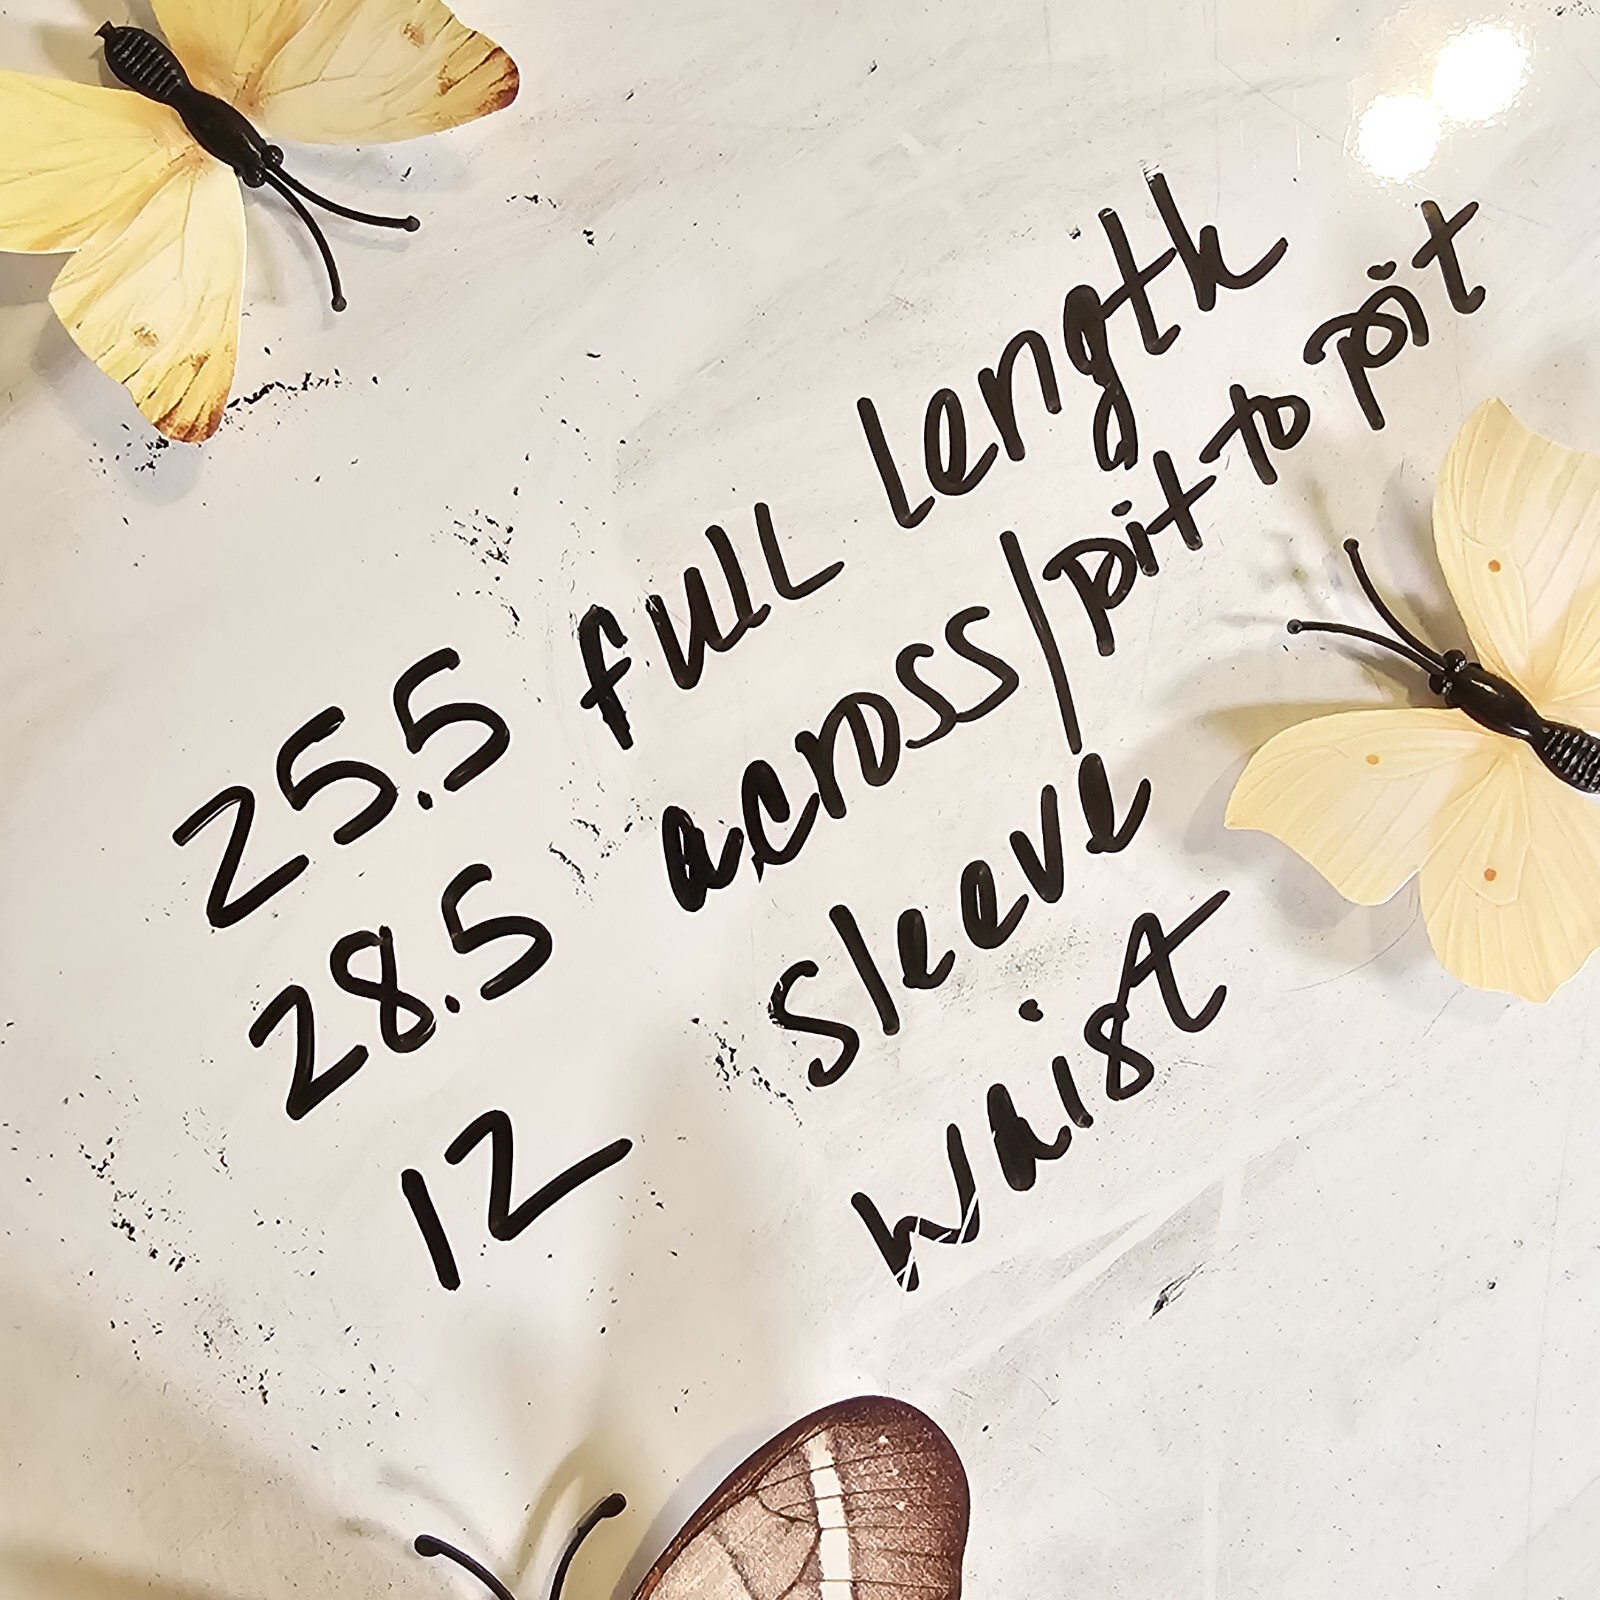 25.5 full length
28.5 across/pit to pit
12 sleeve
waist